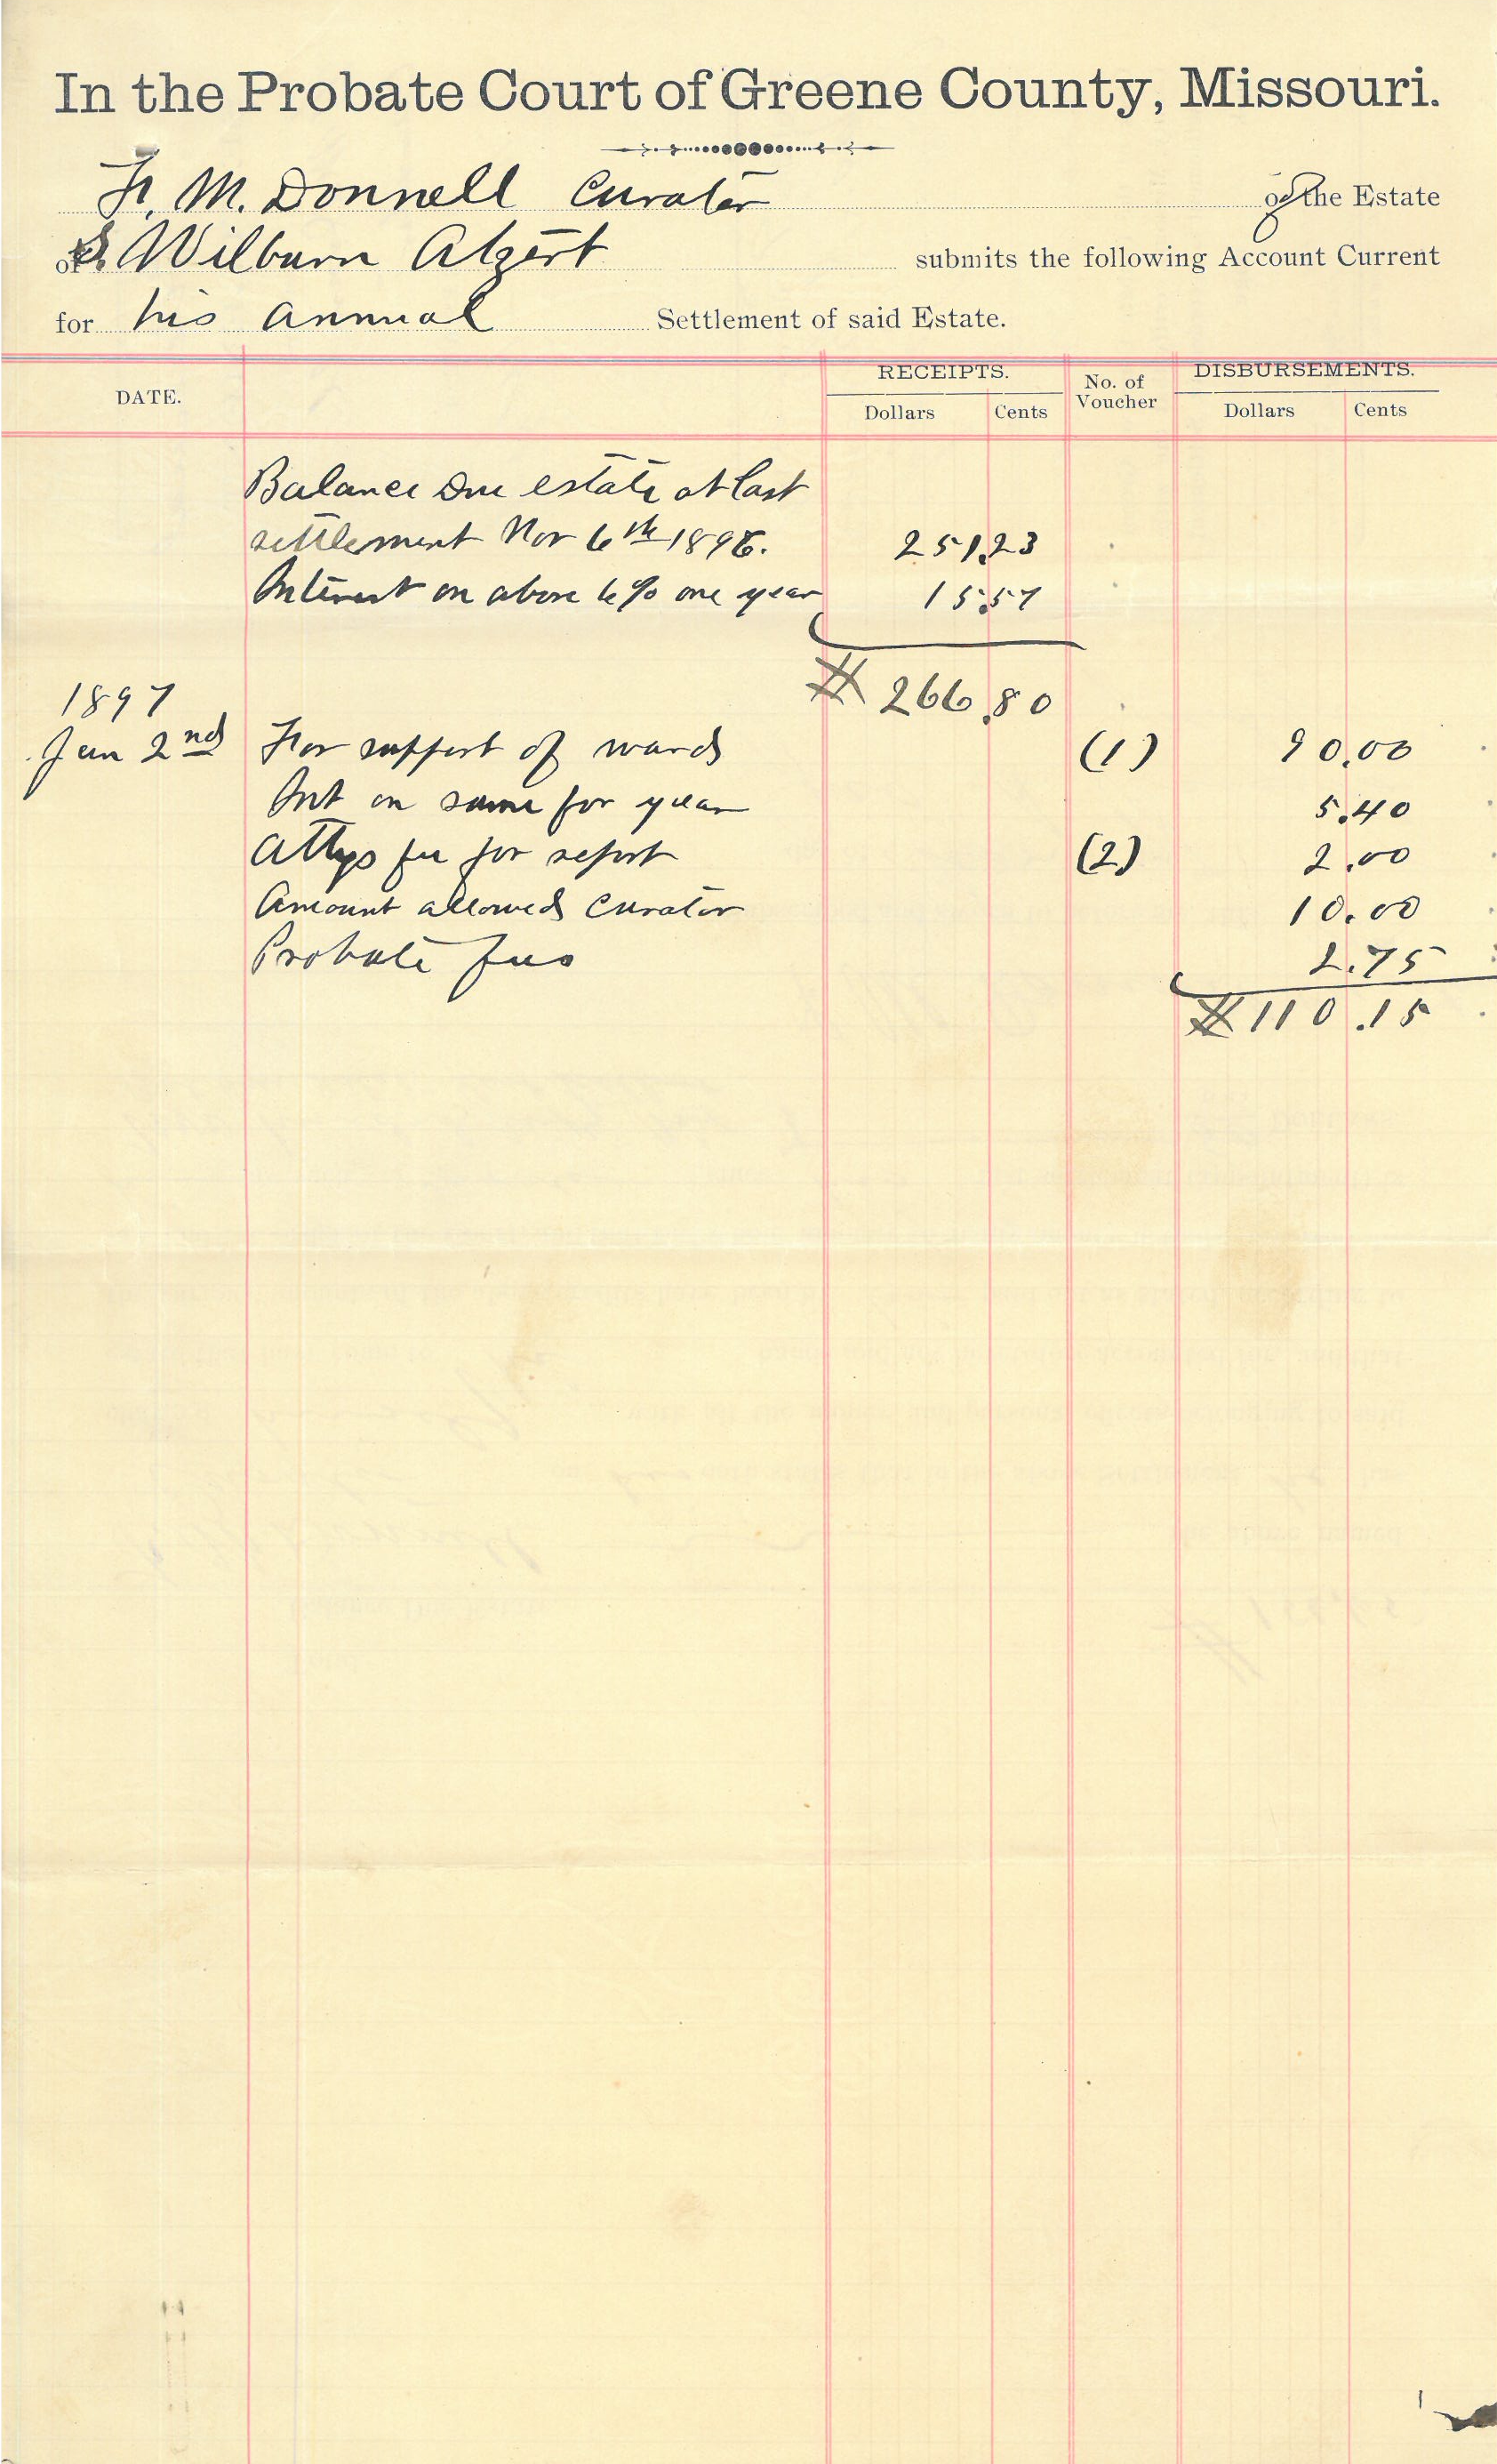 In the Probate Court of Greene County, Missouri.
F. M. Donnell Curator of the Estate
of S. Wilburn Alzert submits the following Account Current
for his annual Settlement of said Estate.
DATE. RECEIPTS. No. of Voucher DISBURSEMENTS.
Dollars Cents Dollars Cents
Balance Due estate at last
settlement Nov 6th 1896. 251.23
Interest on above 6% one year 15.57
$ 266.80
1897
Jan 2nd For support of wards (1) 90.00
Int on same for year 5.40
Attys fee for report (2) 2.00
Amount allowed Curator 10.00
Probate fees 2.75
$110.15